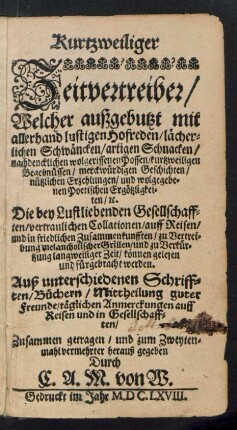 Kurtzweiliger
Zeitvertreiber/
Welcher außgebutzt mit
allerhand lustigen Hofreden/lächer-
lichen Schwäncken/artigen Schnacken/
nachdencklichen wolgerissenen Possen/kurtzweiligen
Begebnüssen/ merckwürdigen Geschichten/
nützlichen Erzehlungen/ und wolgegebe-
nen Poetischen Ergötzligkei-
ten/ ꝛc.
Die bey Lustliebenden Gesellschaff-
ten/vertraulichen Collationen/auff Reisen/
und in friedlichen Zusammenkunfften/ zu Vertrei-
bung melancholischer Grillen/und zu Verkür-
tzung langweiliger Zeit/ können gelesen
und fürgebracht werden.
Auß unterschiedenen Schriff-
ten/Büchern/ Mittheilung guter
Freunde/täglichen Anmerckungen auff
Reisen und in Gesellschaff-
ten/
Zusammen getragen/ und zum Zweyten-
mahl vermehrter herauß gegeben
Durch
C. A. M. von W.
Gedruckt im Jahr M. DC. LXVIII.